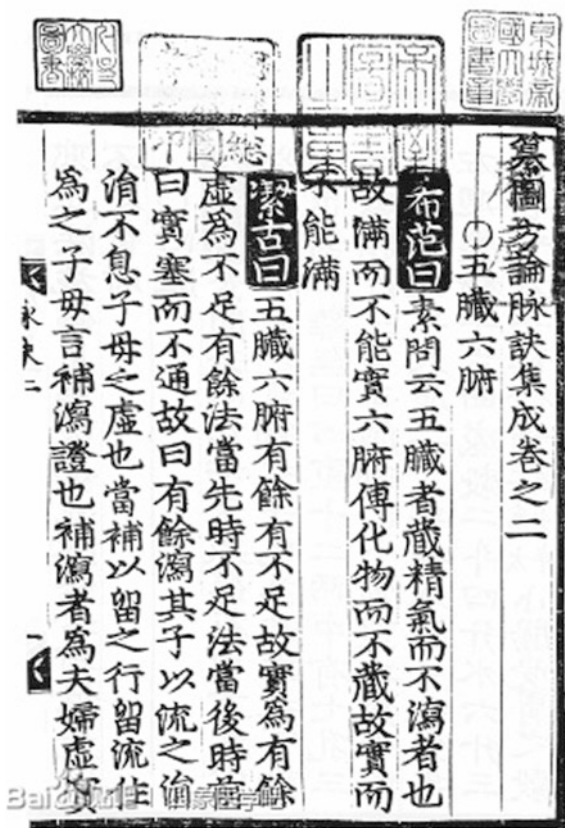 纂圖方論脉訣集成卷之二
○五臟六腑
布范曰素問云五臟者藏精氣而不瀉者也
故滿而不能實六腑傳化物而不藏故實而
不能滿
潔古曰五臟六腑有餘有不足故實為有餘
虛為不足有餘法當先時不足法當後時
曰實塞而不通故曰有餘瀉其子以流之
不息子母之虛也當補以留之行留流住
為之子母言補瀉證也補瀉者為夫婦虛實
Baidu百科